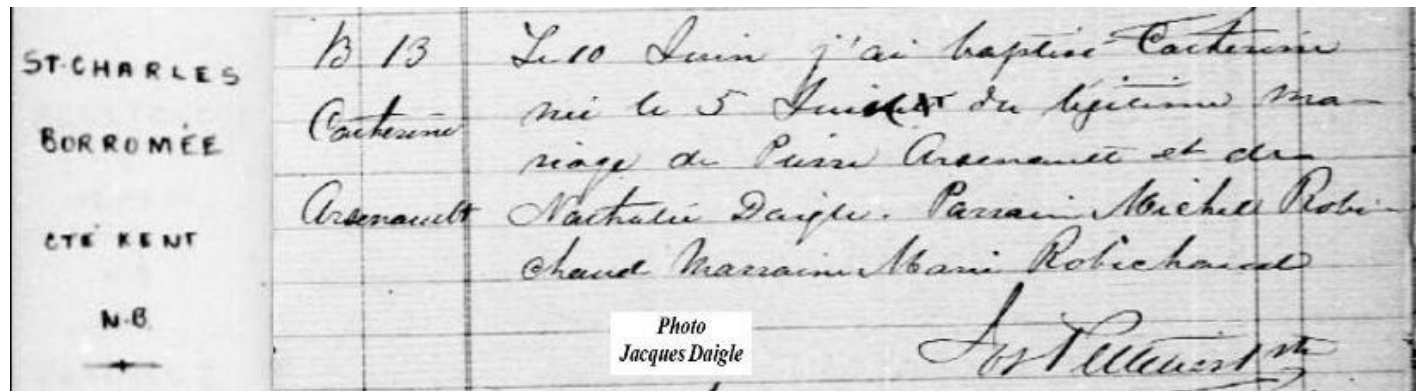 ST-CHARLES
BORROMÉE
CTÉ KENT
N.B.
B 13
Catherine
Arsenault
Le 10 Juin j'ai baptisé Catherine
née le 5 du légitime ma-
riage de Pierre Arsenault et de
Nathalie Daigle. Parrain Michel Robi-
chaud Marraine Marie Robichaud
Jos Pelletier Ptre
Photo
Jacques Daigle